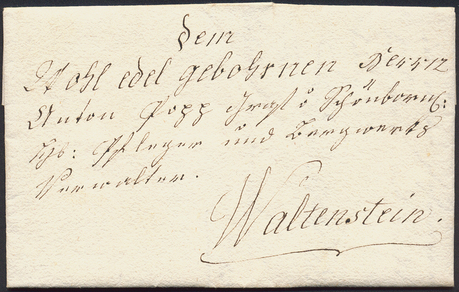 Dem
Wohl edel gebohrnen Herrn
Anton Popp Schönborn:
Pfleger und Bergwerks
Verwalter.
Waltenstein.